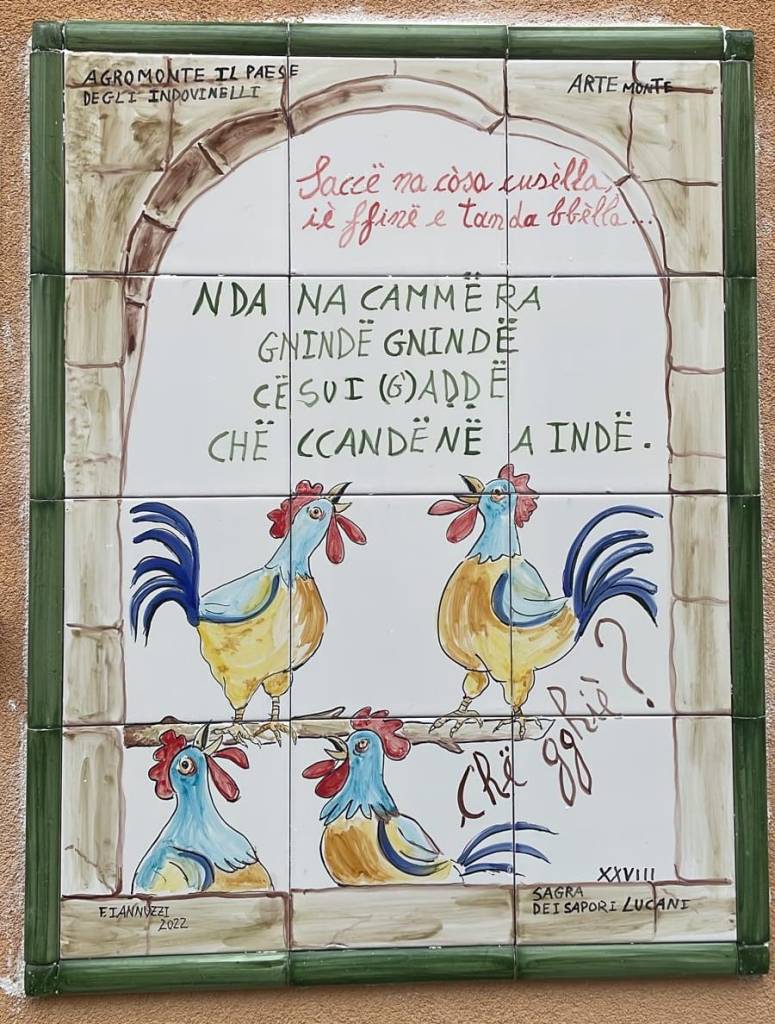 AGROMONTE IL PAESE
DEGLI INDOVINELLI
ARTE MONTE
Saccë na còsa cusèlla,
iè ffinë e tanda bbèlla...
NDA NA CAMMËRA
GNINDË GNINDË
CË SU I (G)AḌḌË
CHË CCANDËNË A INDË.
Chë gghiè?
XXVIII
SAGRA
DEI SAPORI LUCANI
F. IANNUZZI
2022